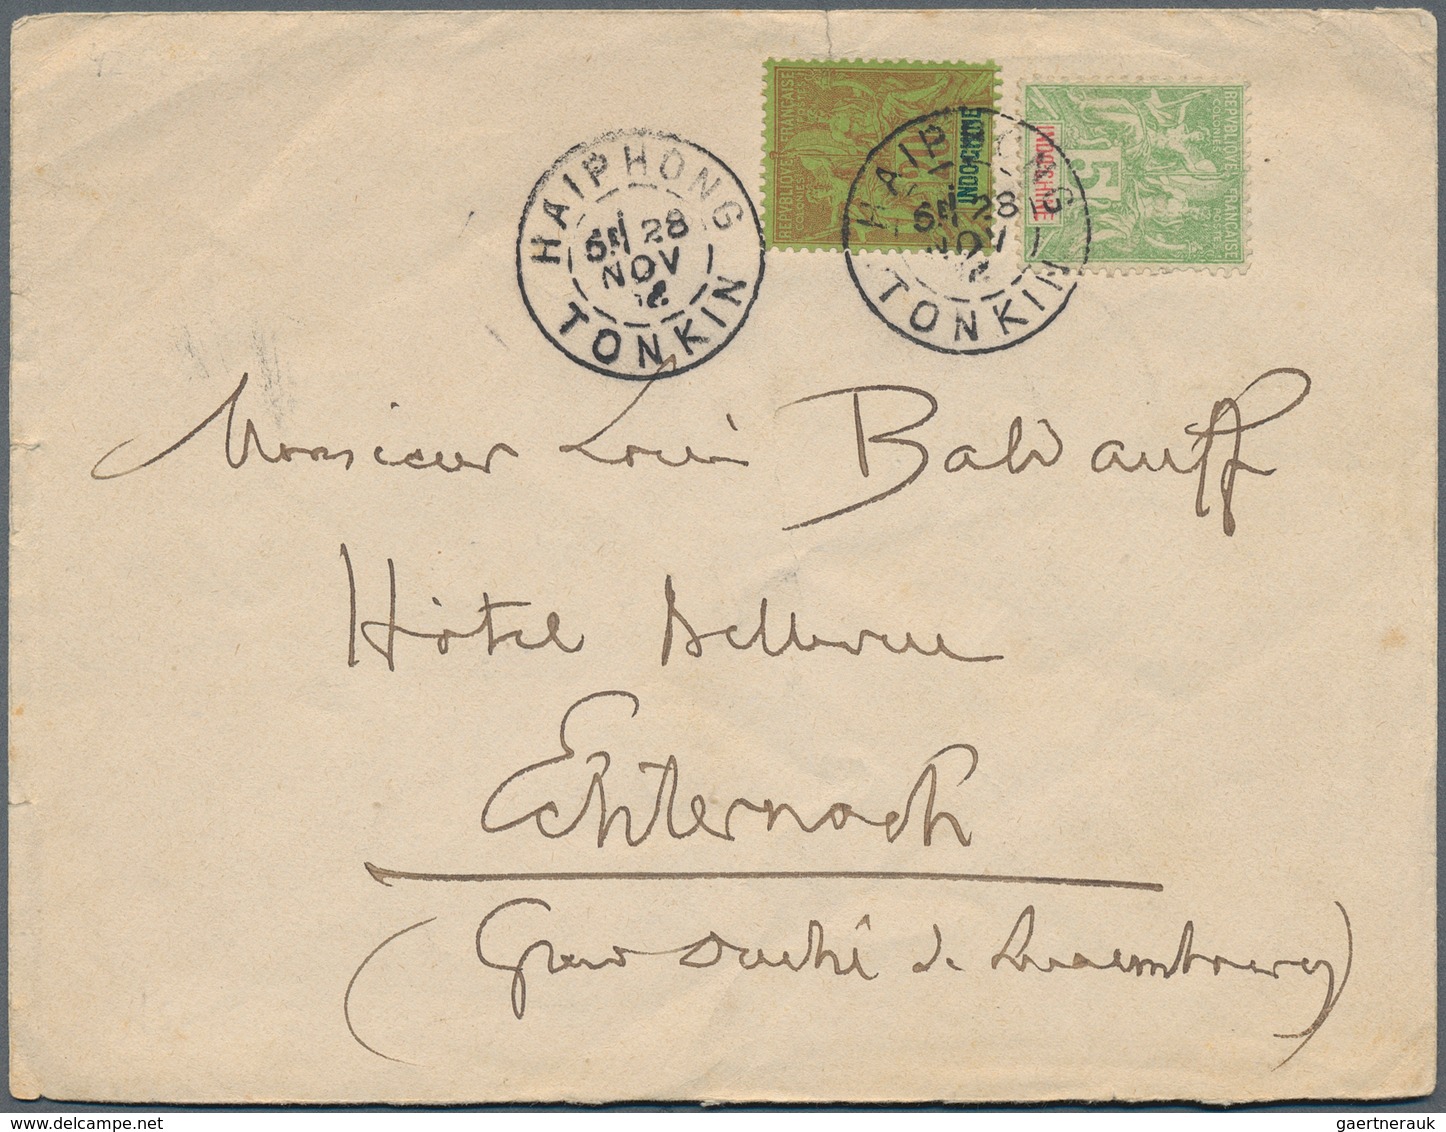 HAIPHONG
28
NOV
TONKIN
REPVBLIQVE FRANÇAISE
COLONIES POSTES
INDO-CHINE
HAIPHONG
28
NOV
TONKIN
REPVBLIQVE FRANÇAISE
COLONIES POSTES
5
INDO-CHINE
Monsieur Louis Baldauff
Hôtel Bellevue
Echternach
(Grand Duché de Luxembourg)
gaertnerauk